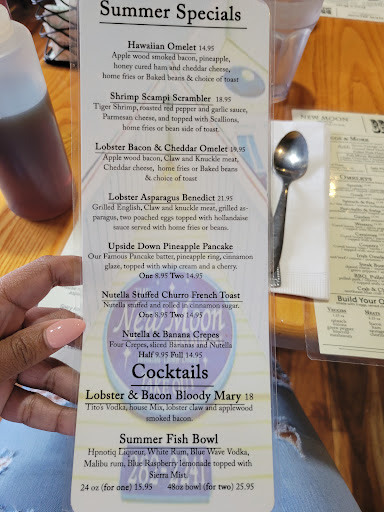 Summer Specials
Hawaiian Omelet 14.95
Apple wood smoked bacon, pineapple,
honey cured ham and cheddar cheese,
home fries or Baked beans & choice of toast
Shrimp Scampi Scrambler 18.95
Tiger Shrimp, roasted red pepper and garlic sauce,
Parmesan cheese, and topped with Scallions,
home fries or bean side of toast.
Lobster Bacon & Cheddar Omelet 19.95
Apple wood bacon, Claw and Knuckle meat,
Cheddar cheese, home fries or Baked beans
& choice of toast
Lobster Asparagus Benedict 21.95
Grilled English, Claw and knuckle meat, grilled as-
paragus, two poached eggs topped with hollandaise
sauce served with home fries or beans.
Upside Down Pineapple Pancake
Our Famous Pancake batter, pineapple ring, cinnamon
glaze, topped with whip cream and a cherry.
One 8.95 Two 14.95
Nutella Stuffed Churro French Toast
Nutella stuffed and rolled in cinnamon sugar.
One 8.95 Two 14.95
Nutella & Banana Crepes
Four Crepes, sliced Bananas and Nutella
Half 9.95 Full 14.95
Cocktails
Lobster & Bacon Bloody Mary 18
Tito's Vodka, house Mix, lobster claw and applewood
smoked bacon.
Summer Fish Bowl
Hpnotiq Liqueur, White Rum, Blue Wave Vodka,
Malibu rum, Blue Raspberry lemonade topped with
Sierra Mist.
24 oz (for one) 15.95 48oz bowl (for two) 25.95
NEW MOON
Omelets
Build Your O